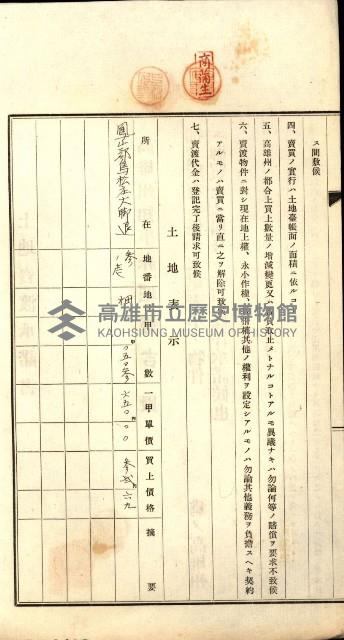 ス間敷候
四、賣買ノ實行ハ土地臺帳面ノ面積ニ依ルコト
五、高雄州ノ都合上買上數量ノ增減變更又ハ買取止メトナルコトアルモ異議ナキハ勿論何等ノ賠償ヲ要求不致候
六、賣渡物件ニ對シ現在地上權、永小作權、其他ノ權利ヲ設定シアルモノハ勿論其他義務ヲ負擔スヘキ契約
アルモノハ賣買ニ當リ直ニ之ヲ解除可致候
七、賣渡代金ハ登記完了後請求可致候
土地表示
所在 地番 地目 甲數 一甲單價 買上價格 摘要
鳳山郡鳥松庄大脚腿 參ノ 畑 〇五〇參 六五〇〇〇 參弐六九
高雄市立歷史博物館
KAOHSIUNG MUSEUM OF HISTORY